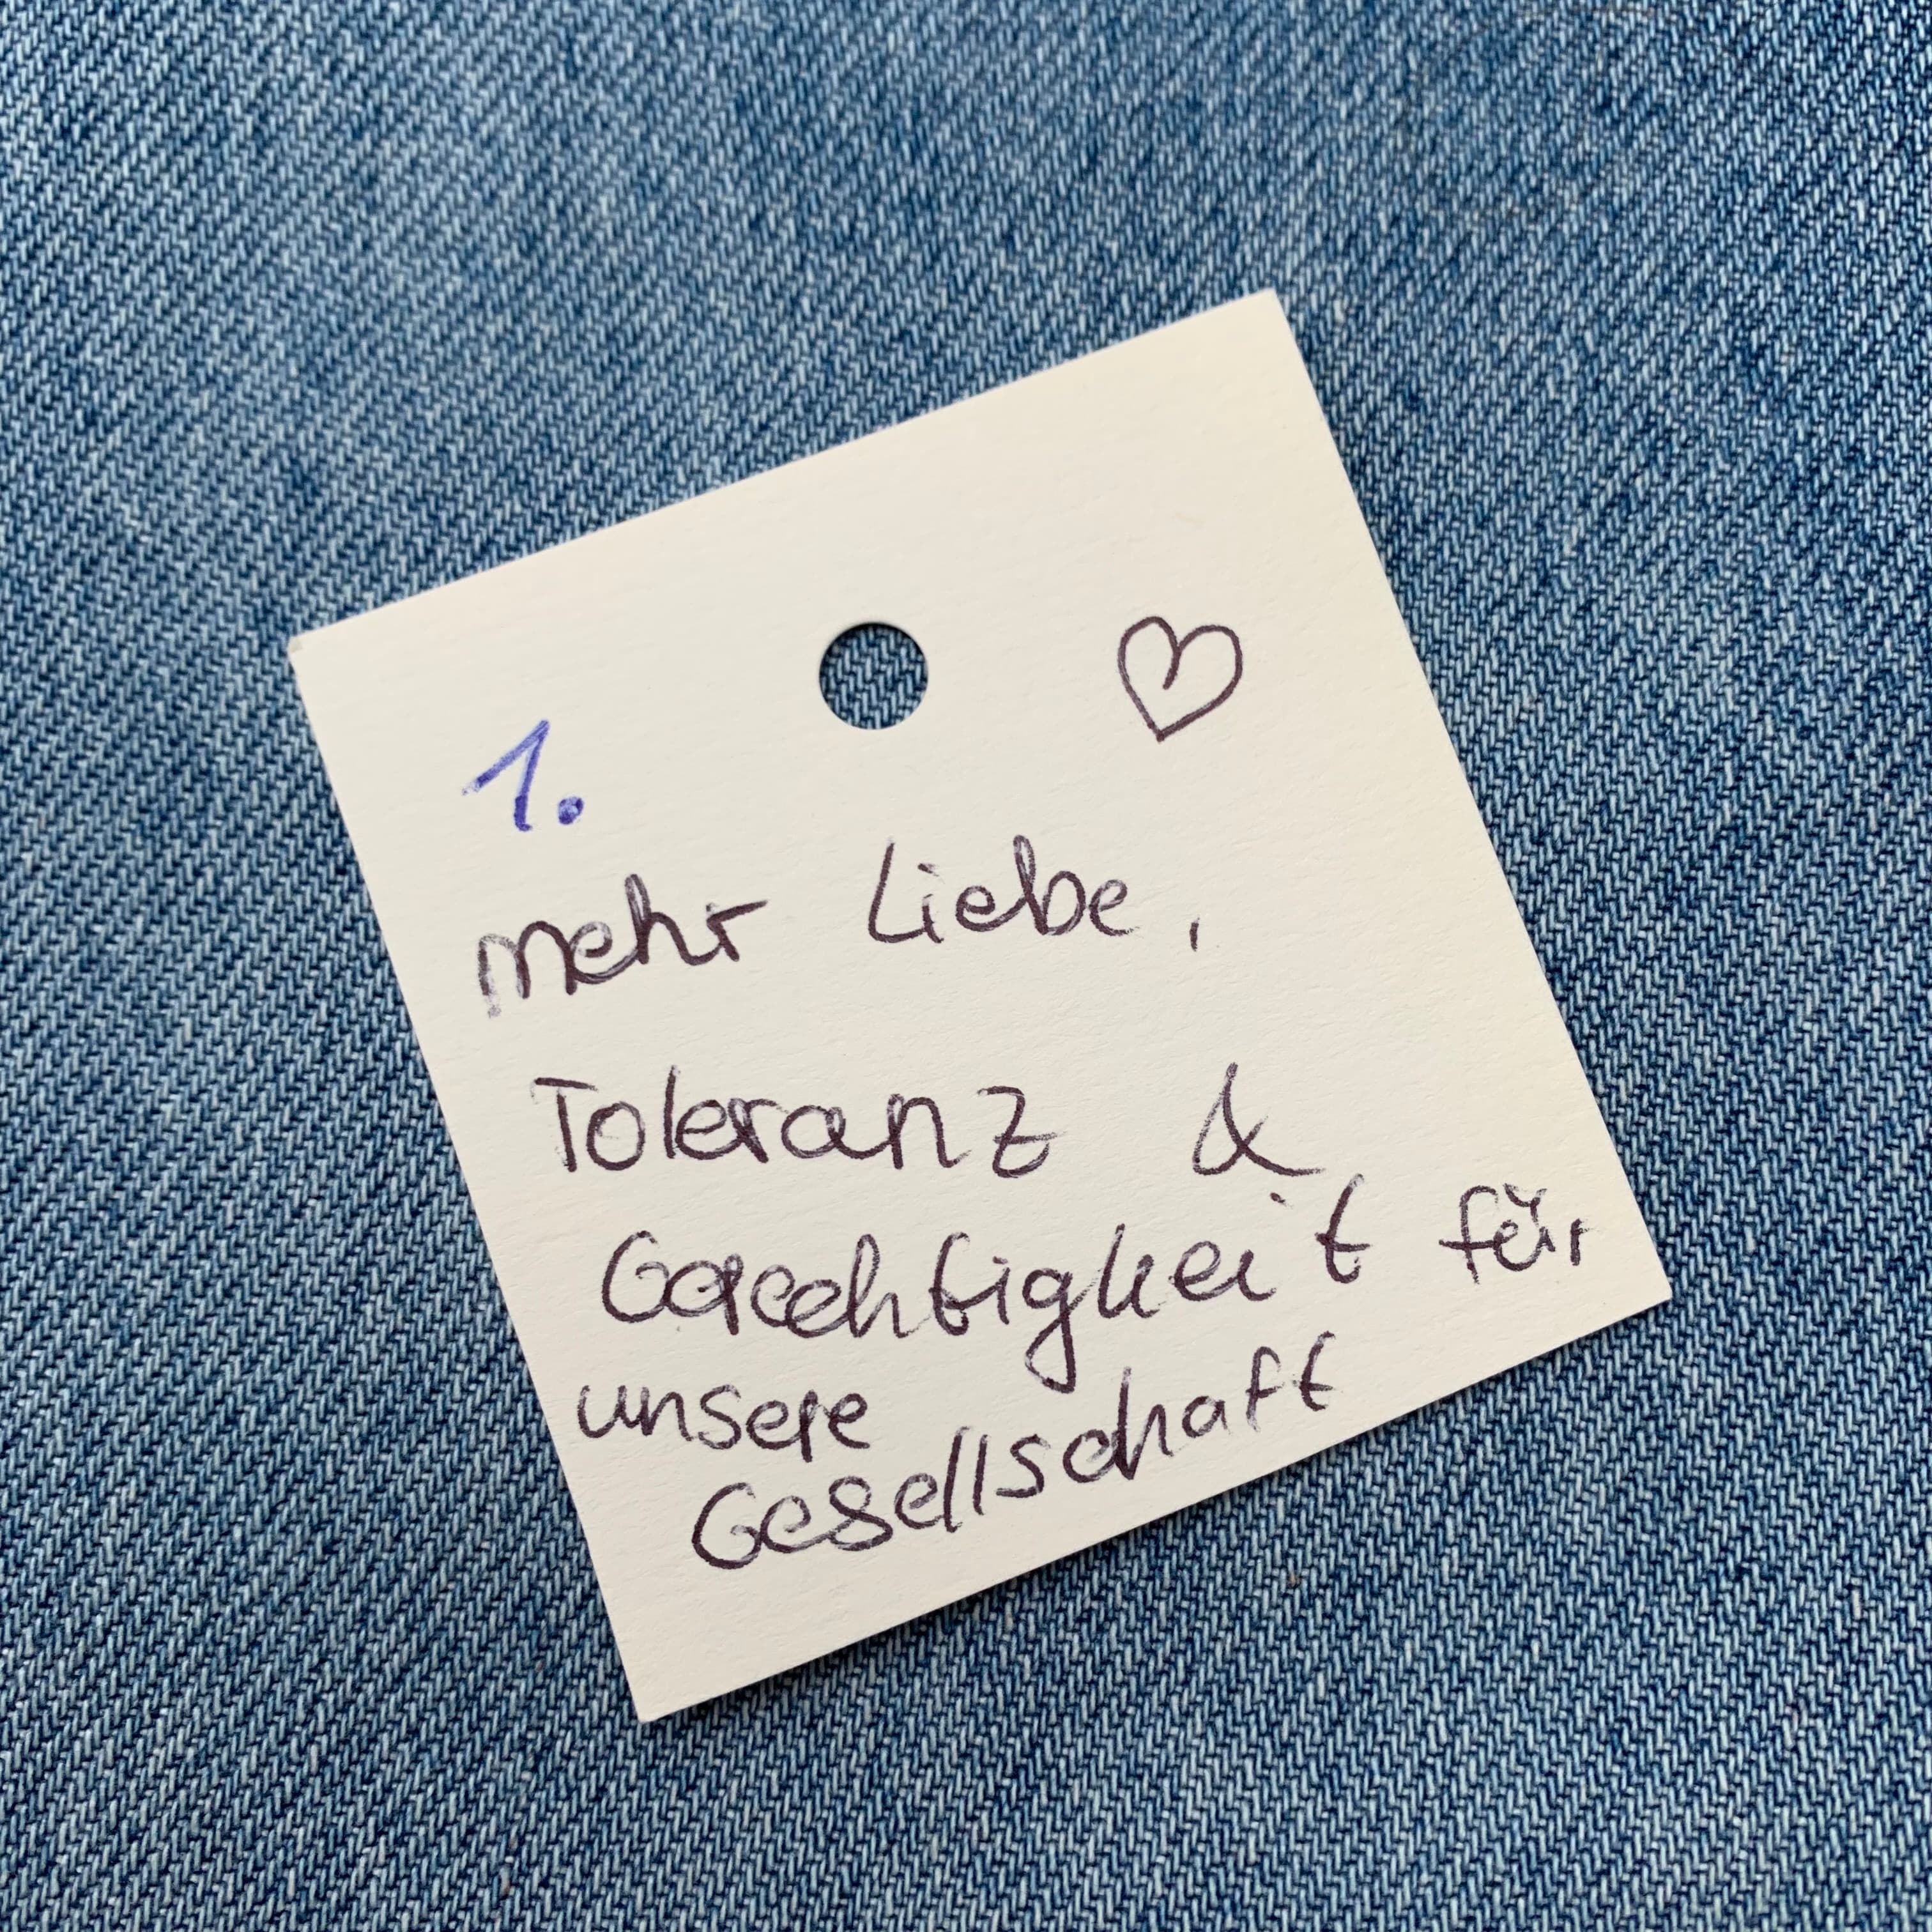 1.
mehr Liebe,
Toleranz &
Gerechtigkeit für
unsere
Gesellschaft